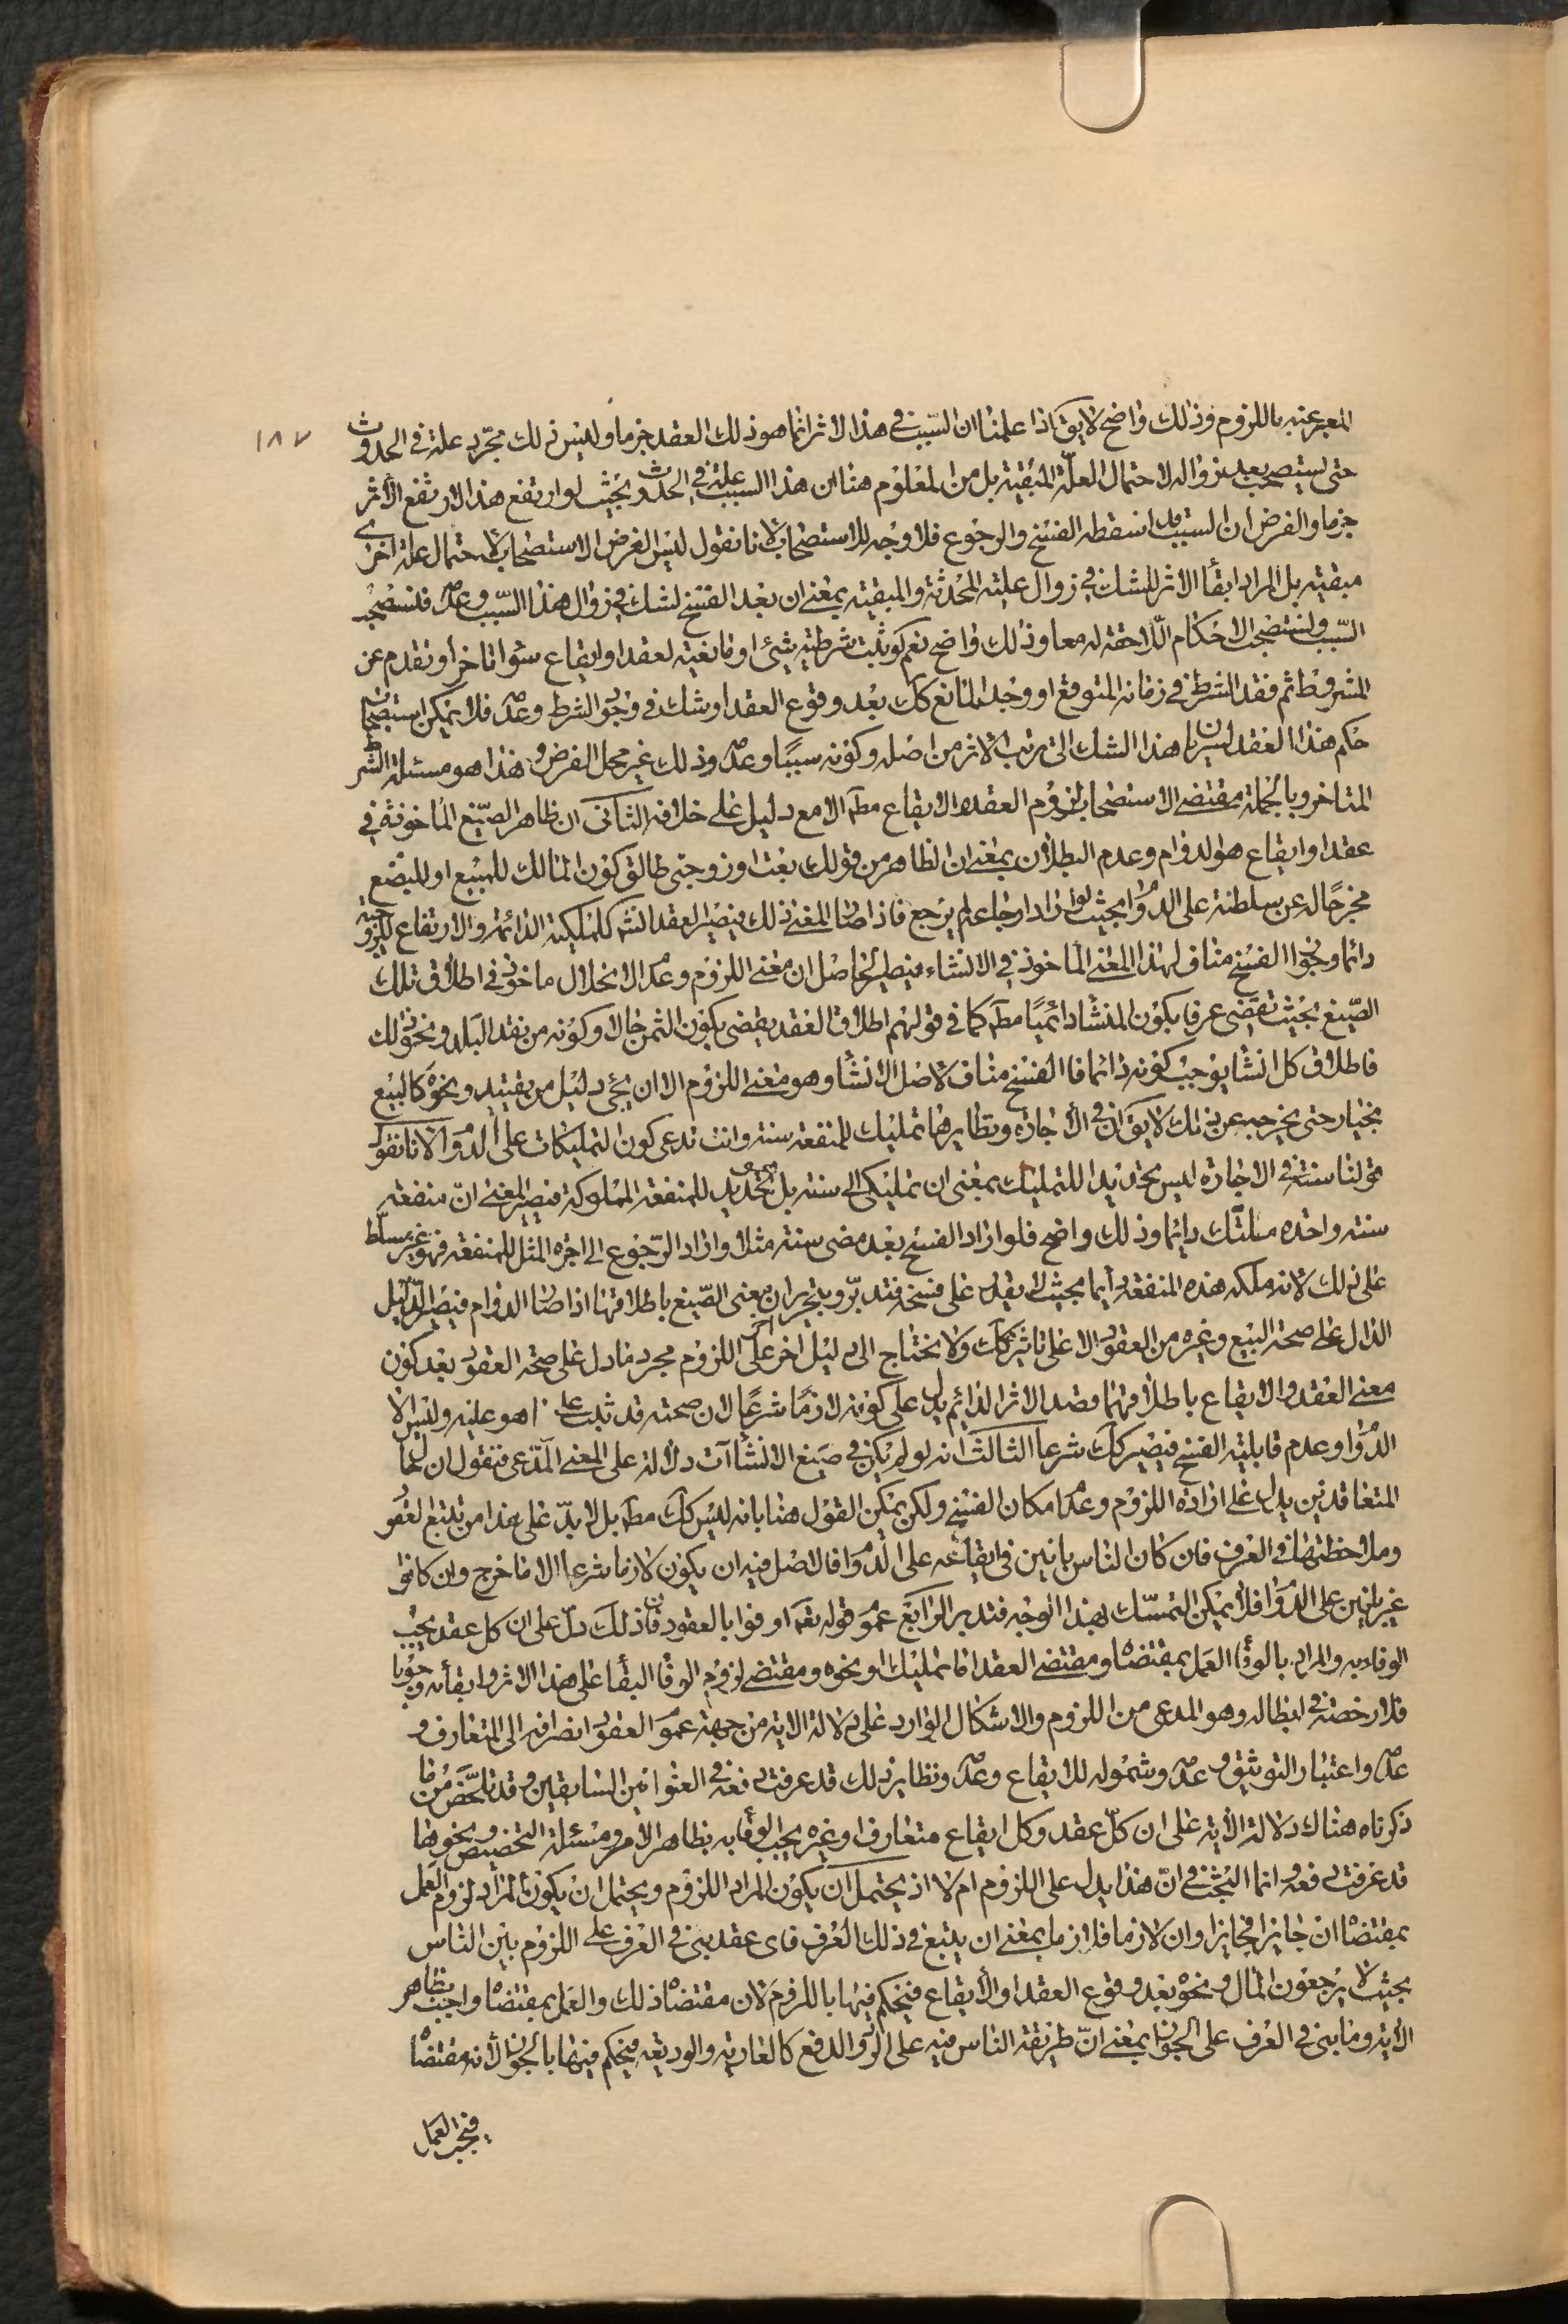 المعبر عنه باللزوم وذلك واضح لا يق اذا علمنا ان السبب في هذا الاثر انما هو ذلك العقد جزما وليس ذلك مجرد علة في الحدوث
١٨٧
حتى يستصحب بعد زواله لاحتمال العلة المبقية بل من المعلوم هنا ان هذا السبب علة في الحدوث بحيث لو ارتفع هذا لارتفع الأثر
جزما والفرض ان السبب قد اسقطه الفسخ والرجوع فلا وجه للاستصحاب لانا نقول ليس الغرض الاستصحاب لاحتمال علة اخرى
مبقية بل المراد ابقأ الاثر للشك في زوال علته المحدثة والمبقية بمعنى ان بعد الفسخ لشك في زوال هذا السبب وعدمه فلنستصحب
السبب ولنستصحب الاحكام اللاحقة له معا وذلك واضح نعم لو ثبت شرطية شئ او مانعيته لعقد او ايقاع سوا تاخر او تقدم عن
المشروط ثم فقد الشرط في زمانه المتوقع او وجد المانع كك بعد وقوع العقد او شك في وجود الشرط وعدمه فلا يمكن استصحاب
حكم هذا العقد لسريان هذا الشك الى ترتب الاثر من اصله وكونه سببًا وعدمه وذلك غير محل الفرض وهذا هو مسئلة الشرط
المتاخر وبالجملة مقتضى الاستصحاب لزوم العقد والايقاع مطه الا مع دليل على خلافه الثانى ان ظاهر الصيغ المأخوذة في
عقد او ايقاع هو الدوام وعدم البطلان بمعنى ان الظاهر من قولك بعت او زوجتى طالق كون المالك للمبيع او للبضع
مخرجًا له عن سلطنته على الدوام بحيث لو اراد ارجاعه لم يرجع فاذا صار المعنى ذلك فيصير العقد انشأ للملكية الدائمة والارتفاع للزوجية
دائما وجواز الفسخ مناف لهذا المعنى المأخوذ في الانشاء فيصير الحاصل ان معنى اللزوم وعدم الانحلال ماخوذ في اطلاق تلك
الصيغ بحيث تقتضى عرفا بكون المنشأ دائميًا مطه كما في قولهم اطلاق العقد يقتضى بكون الثمن حالا وكونه من نقد البلد ونحو ذلك
فاطلاق كل انشأ يوجب كونه دائما فالفسخ مناف لاصل الانشأ وهو معنى اللزوم الا ان يجئ دليل من تقييد ونحوه كالبيع
بخيار حتى يخرجه عن ذلك لا يق ان في الأجارة ونظايرها تمليك للمنفعة سنة وانت تدعى كون التمليكات على الدوام لانا نقول
قولنا سنة في الاجارة ليس تحديدا للتمليك بمعنى ان تمليكى الى سنة بل هو تحديد للمنفعة المملوكة فيصير المعنى ان منفعة
سنة واحدة ملكتك دائما وذلك واضح فلو اراد الفسخ بعد مضى سنة مثلا واراد الرجوع الى اجرة المثل للمنفعة فهو غير مسلط
على ذلك لانه ملكه هذه المنفعة دائما بحيث لا يقدر على فسخه فتدبر وبتحرير اخر ان معنى الصيغ باطلاقها اذا صار الدوام فيصير الدليل
الدال على صحة البيع وغيره من العقود دالا على تاثيره كك ولا يحتاج الى دليل اخر على اللزوم مجرد ما دل على صحة العقود بعد كون
معنى العقد والايقاع باطلاقهما قصد الاثر الدائم يدل على كونه لازمًا شرعًا لان صحته قد ثبت على ما هو عليه وليس الا
الدوام وعدم قابلية الفسخ فيصير كك شرعا الثالث انه لو لم يكن في صيغ الانشاآت دلالة على المعنى المدعى فنقول ان حال
المتعاقدين يدل على ارادة اللزوم وعدم امكان الفسخ ولكن يمكن القول هنا بانه ليس كك مطه بل لا بد على هذا من تتبع العقود
وملاحظتها في العرف فان كان الناس بانين في ايقاعه على الدوام فالاصل فيه ان يكون لازما شرعا الا ما خرج وان كانوا
غير بانين على الدوام فلا يمكن التمسك بهذا الوجه فتدبر الرابع عموم قوله تعه اوفوا بالعقود فان ذلك دل على ان كل عقد يجب
الوفاء به والمراد بالوفأ العمل بمقتضاه ومقتضى العقد اما تمليك او نحوه ومقتضى لزوم الوفأ البقأ على هذا الاثر وابقأئه وجوبا
فلا رخصة في ابطاله وهو المدعى من اللزوم والاشكال الوارد على دلالة الاية من جهة عموم العقود وانصرافه الى المتعارف و
عدمه واعتبار التوثيق وعدمه وشموله للايقاع وعدمه ونظاير ذلك قد عرفت دفعه في العنوانين السابقين وقد تلخص مما
ذكرناه هناك دلالة الأية على ان كل عقد وكل ايقاع متعارف او غيره يجب الوفأ به بظاهر الأمر ومسئلة التخصيص ونحوها
قد عرفت دفعه وانما البحث في ان هذا يدل على اللزوم ام لا اذ يحتمل ان يكون المراد اللزوم ويحتمل ان يكون المراد لزوم العمل
بمقتضاه ان جايزا فجايزا وان لازما فلازما بمعنى ان يتبع في ذلك العرف فاى عقد بنى في العرف على اللزوم بين الناس
بحيث لا يرجعون المال ونحوه بعد وقوع العقد او الأيقاع فيحكم فيها باللزوم لان مقتضاه ذلك والعمل بمقتضاه واجب بظاهر
الأية وما بنى في العرف على الجواز بمعنى ان طريقة الناس فيه على الرد والدفع كالعارية والوديعة فيحكم فيها بالجواز لأنه مقتضاه
فيجب العمل